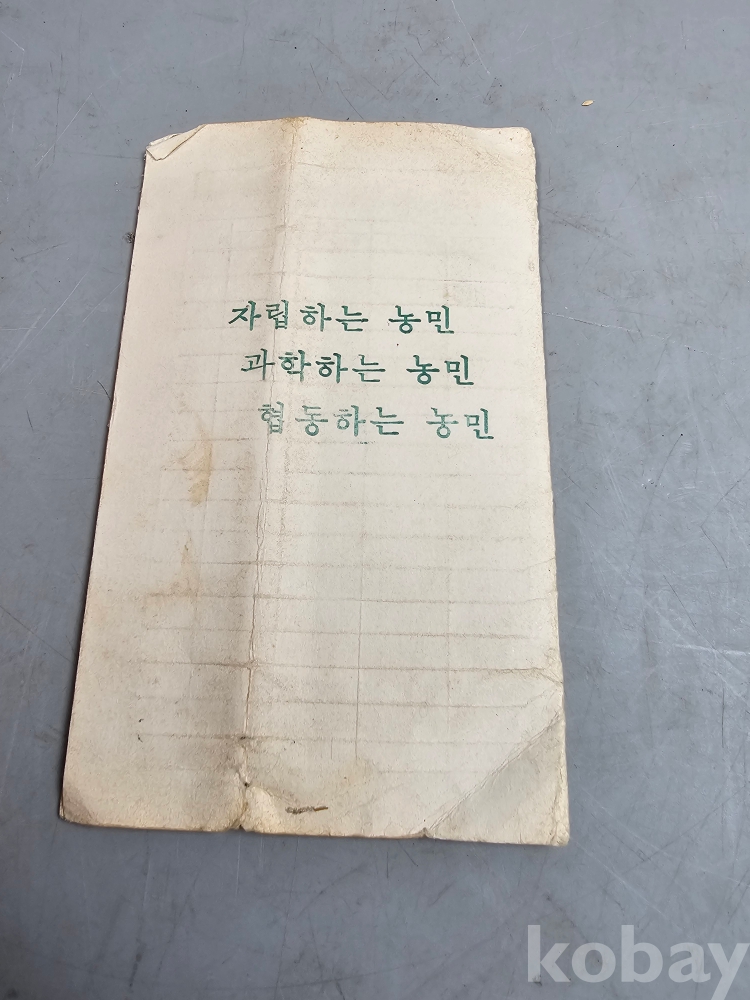 자립하는 농민
과학하는 농민
협동하는 농민
kobay